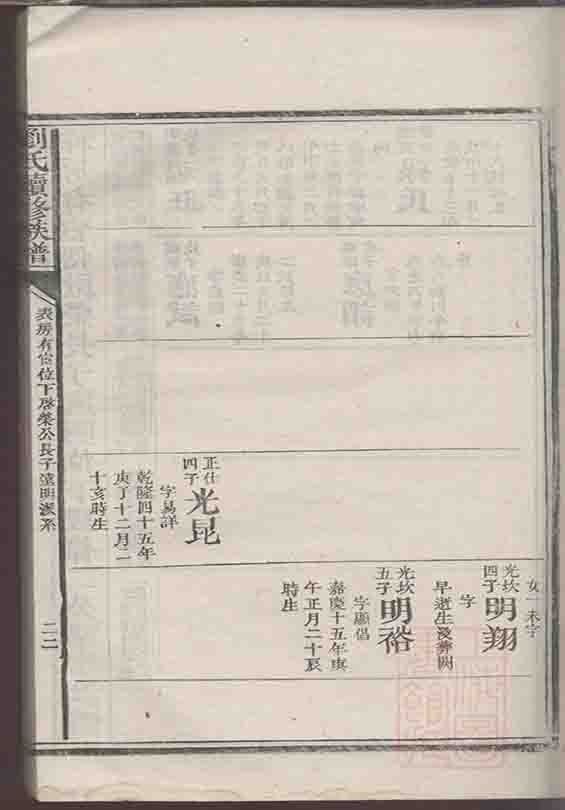 女一未字
光坎四子
明翔
字
早逝生歿葬闕
光坎五子
明裕
字顯倡
嘉慶十五年庚
午正月二十辰
時生
正仕四子
光昆
字易詳
乾隆四十五年
庚丁十二月二
十亥時生
劉氏續修族譜
表房有富位下啓榮公長子遠明派系
二二